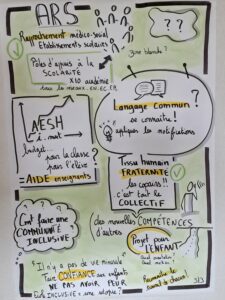 ARS
Rapprochement médico-social
Etablissements scolaires
? ?
zone blanche ?
Pôles d'appuis à la
SCOLARITÉ
x10 académie
tous les niveaux, EN, EC, CP
Langage Commun ?
se connaître !
appliquer les notifications
AESH
budget
pour la classe ?
pour l'élève
= AIDE enseignants
Tissu humain
FRATERNITÉ
les copains !!
c'est tout le
COLLECTIF
C'est faire une
COMMUNAUTÉ
INCLUSIVE ?
des nouvelles COMPÉTENCES
d'autres
Projet pour
L'ENFANT
"Il n'y a pas de vie minuscule
Faut CONFIANCE aux enfants
NE PAS AVOIR PEUR
École INCLUSIVE = une utopie ?